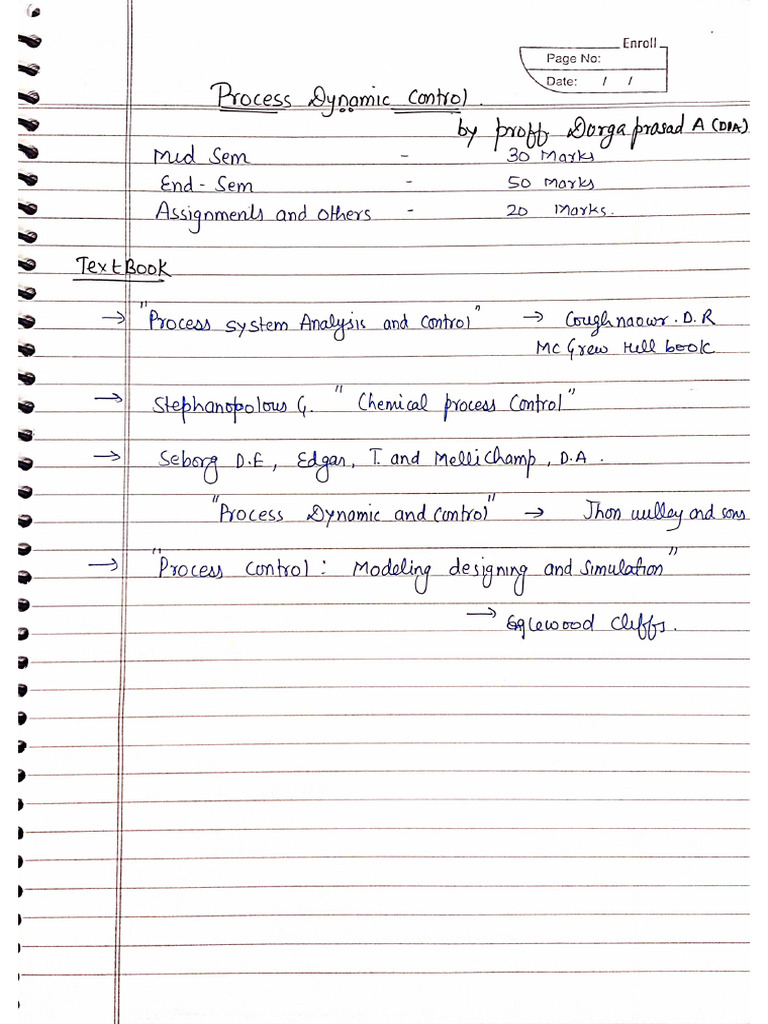 Enroll
Page No:
Date: / /
Process Dynamic Control.
by proff Dorga prasad A (DPA)
Mid Sem - 30 Marks
End-Sem - 50 Marks
Assignments and others - 20 Marks.
Text Book
→ "Process system Analysis and control" → Coughnaowr. D. R
Mc Grew Hill book
→ Stephanopolous G. "Chemical process Control"
→ Seborg D.E, Edgar, T. and Mellichamp, D.A.
"Process Dynamic and Control" → Jhon willey and sons
→ "Process control: Modeling designing and Simulation"
→ Eglewood Cliffs.